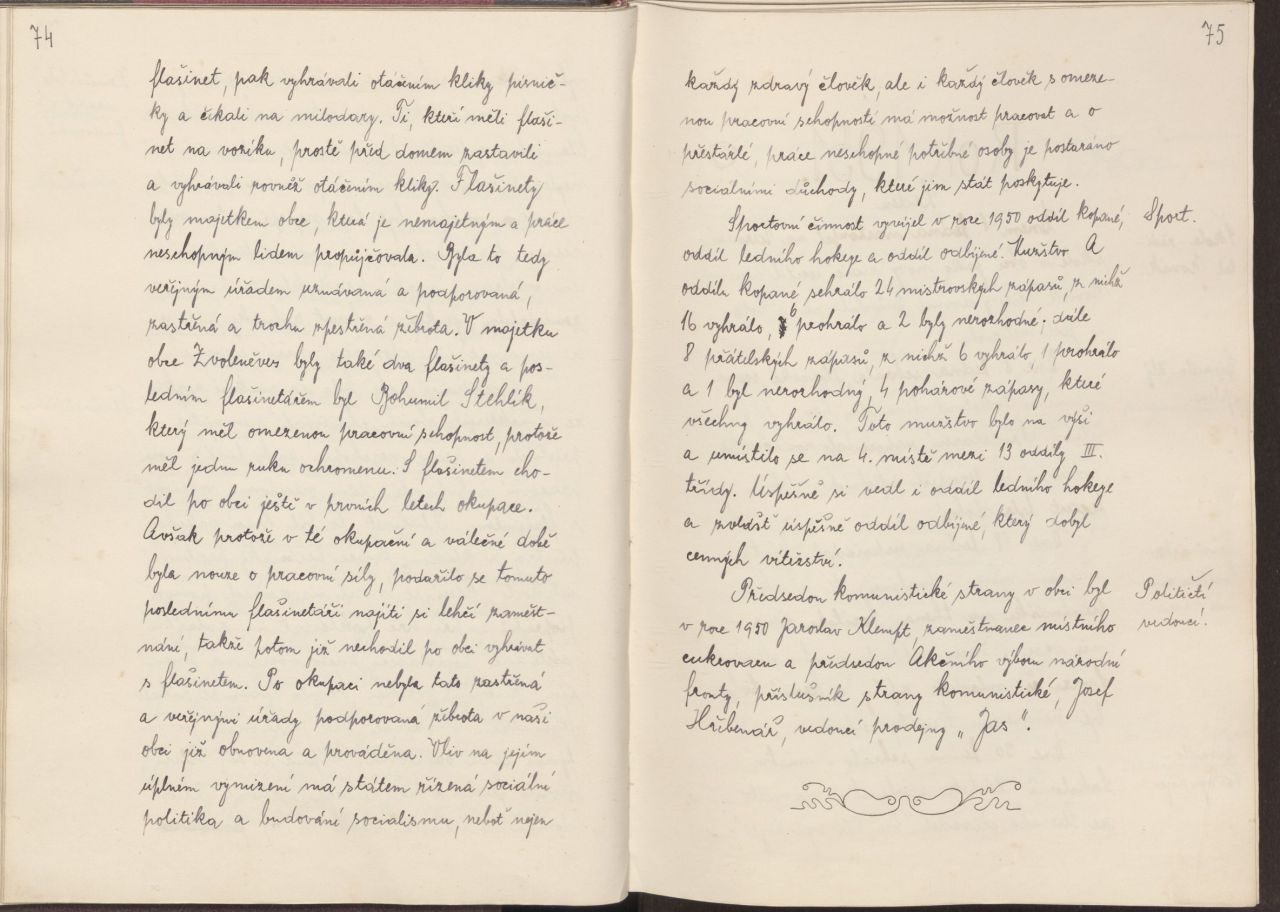 74
flašinet, pak vyhrávali otáčením kliky písnič-
ky a čekali na milodary. Ti, kteří měli flaši-
net na vozíku, prostě před domem zastavili
a vyhrávali rovněž otáčením kliky. Flašinety
byly majetkem obce, která je nemajetným a práce
neschopným lidem propůjčovala. Byla to tedy
veřejným úřadem uznávaná a podporovaná,
zastřená a trochu zpestřená žebrota. V majetku
obce Zvoleněves byly také dva flašinety a pos-
ledním flašinetářem byl Bohumil Stehlík,
který měl omezenou pracovní schopnost, protože
měl jednu ruku ochromenu. S flašinetem cho-
dil po obci ještě v prvních letech okupace.
Avšak protože v té okupační a válečné době
byla nouze o pracovní síly, podařilo se tomuto
poslednímu flašinetáři najíti si lehčí zaměst-
nání, takže potom již nechodil po obci vyhrávat
s flašinetem. Po okupaci nebyla tato zastřená
a veřejnými úřady podporovaná žebrota v naší
obci již obnovena a prováděna. Vliv na jejím
úplném vymizení má státem řízená sociální
politika a budování socialismu, neboť nejen
75
každý zdravý člověk, ale i každý člověk s omeze-
nou pracovní schopností má možnost pracovat a o
přestárlé, práce neschopné potřebné osoby je postaráno
sociálními důchody, které jim stát poskytuje.
Sportovní činnost vyvíjel v roce 1950 oddíl kopané,
Sport.
oddíl ledního hokeye a oddíl odbíjené. Mužstvo A
oddílu kopané sehrálo 24 mistrovských zápasů, z nichž
16 vyhrálo, 6 prohrálo a 2 byly nerozhodné; dále
8 přátelských zápasů, z nichž 6 vyhrálo, 1 prohrálo
a 1 byl nerozhodný, 4 pohárové zápasy, které
všechny vyhrálo. Toto mužstvo bylo na výši
a umístilo se na 4. místě mezi 13 oddíly III.
třídy. Úspěšně si vedl i oddíl ledního hokeye
a zvlášť úspěšně oddíl odbíjené, který dobyl
cenných vítězství.
Předsedou komunistické strany v obci byl
Političtí
v roce 1950 Jaroslav Klempt, zaměstnanec místního
vedoucí.
cukrovaru a předsedou Akčního výboru národní
fronty, příslušník strany komunistické, Josef
Hřibenář, vedoucí prodejny „Jas“.